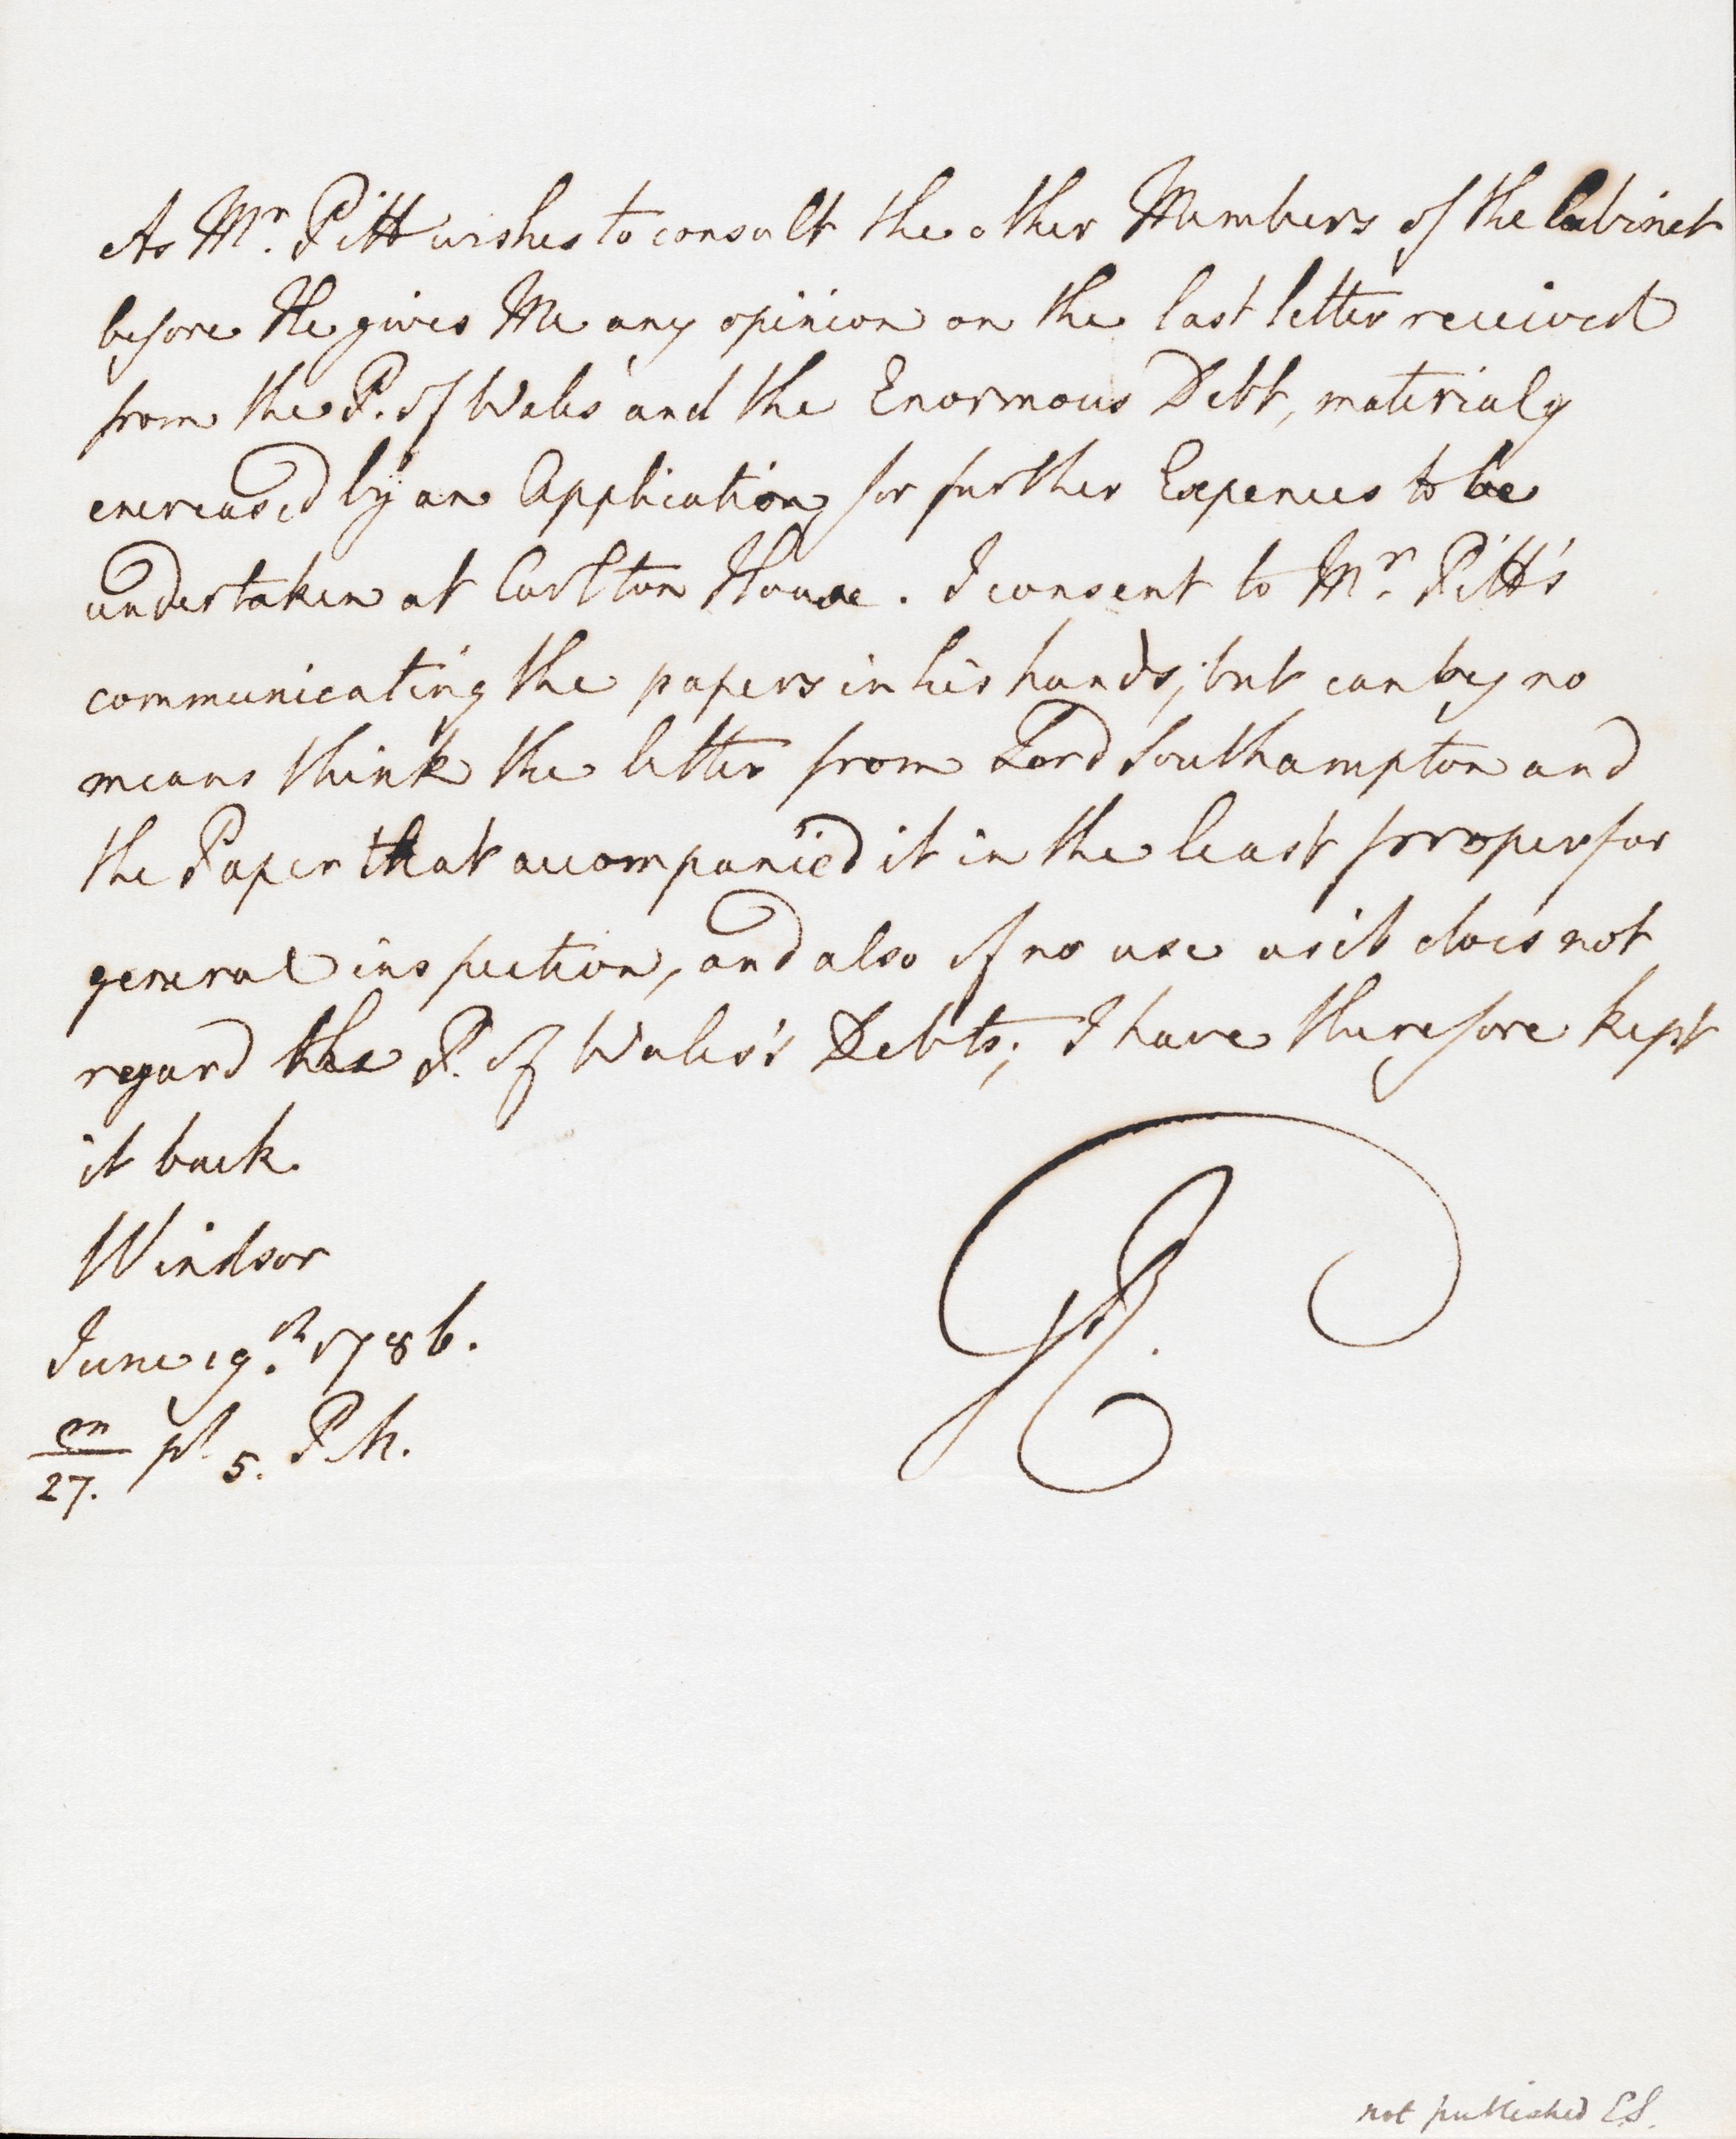 As Mr. Pitt wishes to consult the other Members of the Cabinet
before He gives Me any opinion on the last letter received
from the P. of Wales and the Enormous Debt, materialy
encreased by an Application for further Expences to be
undertaken at Carlton House. I consent to Mr. Pitt's
communicating the papers in his hands, but can by no
means think the letter from Lord Southampton and
the Paper that accompanied it in the least proper for
general inspection, and also of no use as it does not
regard the P. of Wales's Debts; I have therefore kept
it back.
Windsor
June 19th. 1786.
m/27. pt. 5. P.M.
GR.
not published E.S.